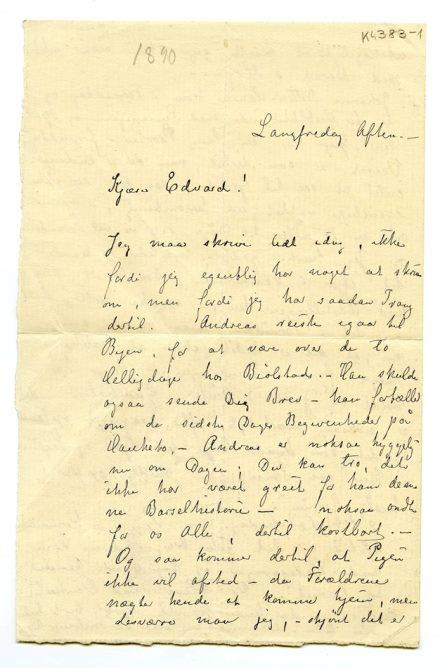 K4383-1
1890
Langfredag Aften.—
Kjære Edvard!
Jeg maa skrive lidt idag, ikke
fordi jeg egentlig har noget at skrive
om, men fordi jeg har saadan Trang
dertil. Andreas reiste igaar til
Byen, for at være over de to
Helligdage hos Biølstads.— Han skulde
ogsaa sende Dig Brev – han fortæller
om de sidste Dages Begivenheder på
Hankebo,— Andreas er noksaa hyggelig
nu om Dagen; Du kan tro, det
ikke har været greit for ham den
ne Barselhistorie — noksaa ondt
for os Alle, dertil kostbart.—
Og saa kommer dertil, at Pigen
ikke vil afsted – da Forældrene
nægte hende at komme hjem, men
desværre maa jeg, – skjønt det er